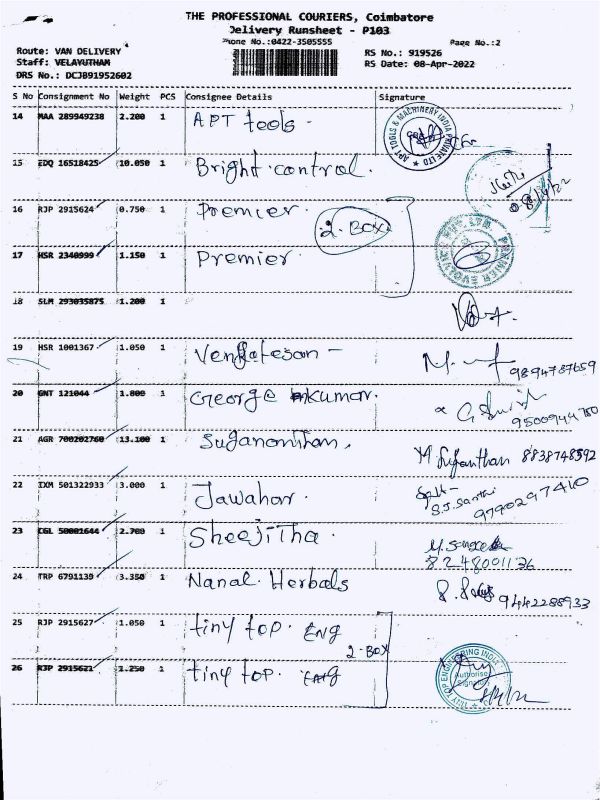 THE PROFESSIONAL COURIERS, Coimbatore
Delivery Runsheet - P103
Phone No.:0422-3505555 Page No.:2
Route: VAN DELIVERY RS No.: 919526
Staff: VELAYUTHAM RS Date: 08-Apr-2022
DRS No.: DCJB91952602
S No Consignment No Weight PCS Consignee Details Signature
14 MAA 289949238 2.200 1 APT tools -
APT TOOLS & MACHINERY INDIA PRIVATE LTD
15 EDQ 16518425 10.050 1 Bright control.
08/4/22
16 RJP 2915624 0.750 1 Premier.
2. Box
17 HSR 2340999 1.150 1 Premier
18 SLM 293035875 1.200 1
19 HSR 1001367 1.050 1 Venkatesan - 9894787659
20 GNT 121044 1.800 1 George kumar.
9500944780
21 AGR 700202760 13.100 1 Suganantham, M. Suganthan 8838748592
22 IXM 501322933 3.000 1 Jawahar. S.S. Santhi
9790297410
23 CGL 50001644 2.700 1 Sheejitha.
8248001136
24 TRP 6791139 3.350 1 Nanal. Herbals 9442288933
25 RJP 2915627 1.050 1 tiny top. ENG
2-BOX
26 RJP 2915621 1.250 1 tiny top. ENG
TINY TOP ENGINEERING INDIA
Authorised
Signatory
8/4/22